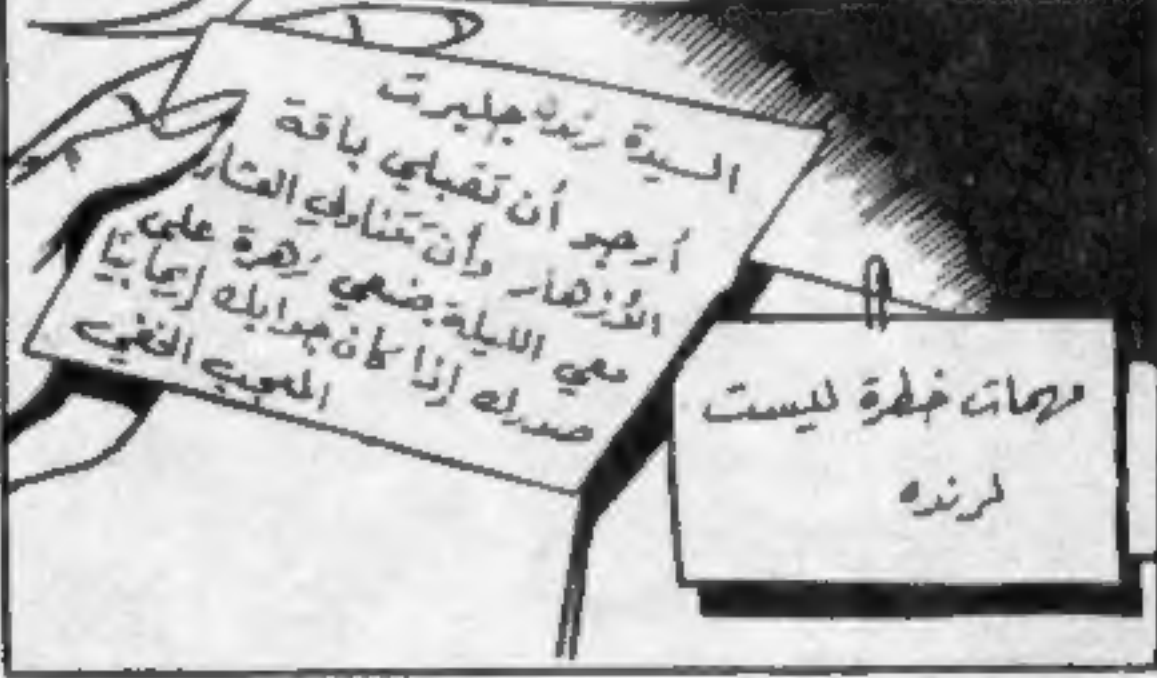 السيدة رنده جلبرت
أرجو أن تقبلي باقة
الأزهار وأن تتناولي العشاء
معي الليلة ضعي زهرة على
صدرك إذا كان جوابك إيجابيًا
المعجب الخفي
مهمات خطرة ليست
لرنده